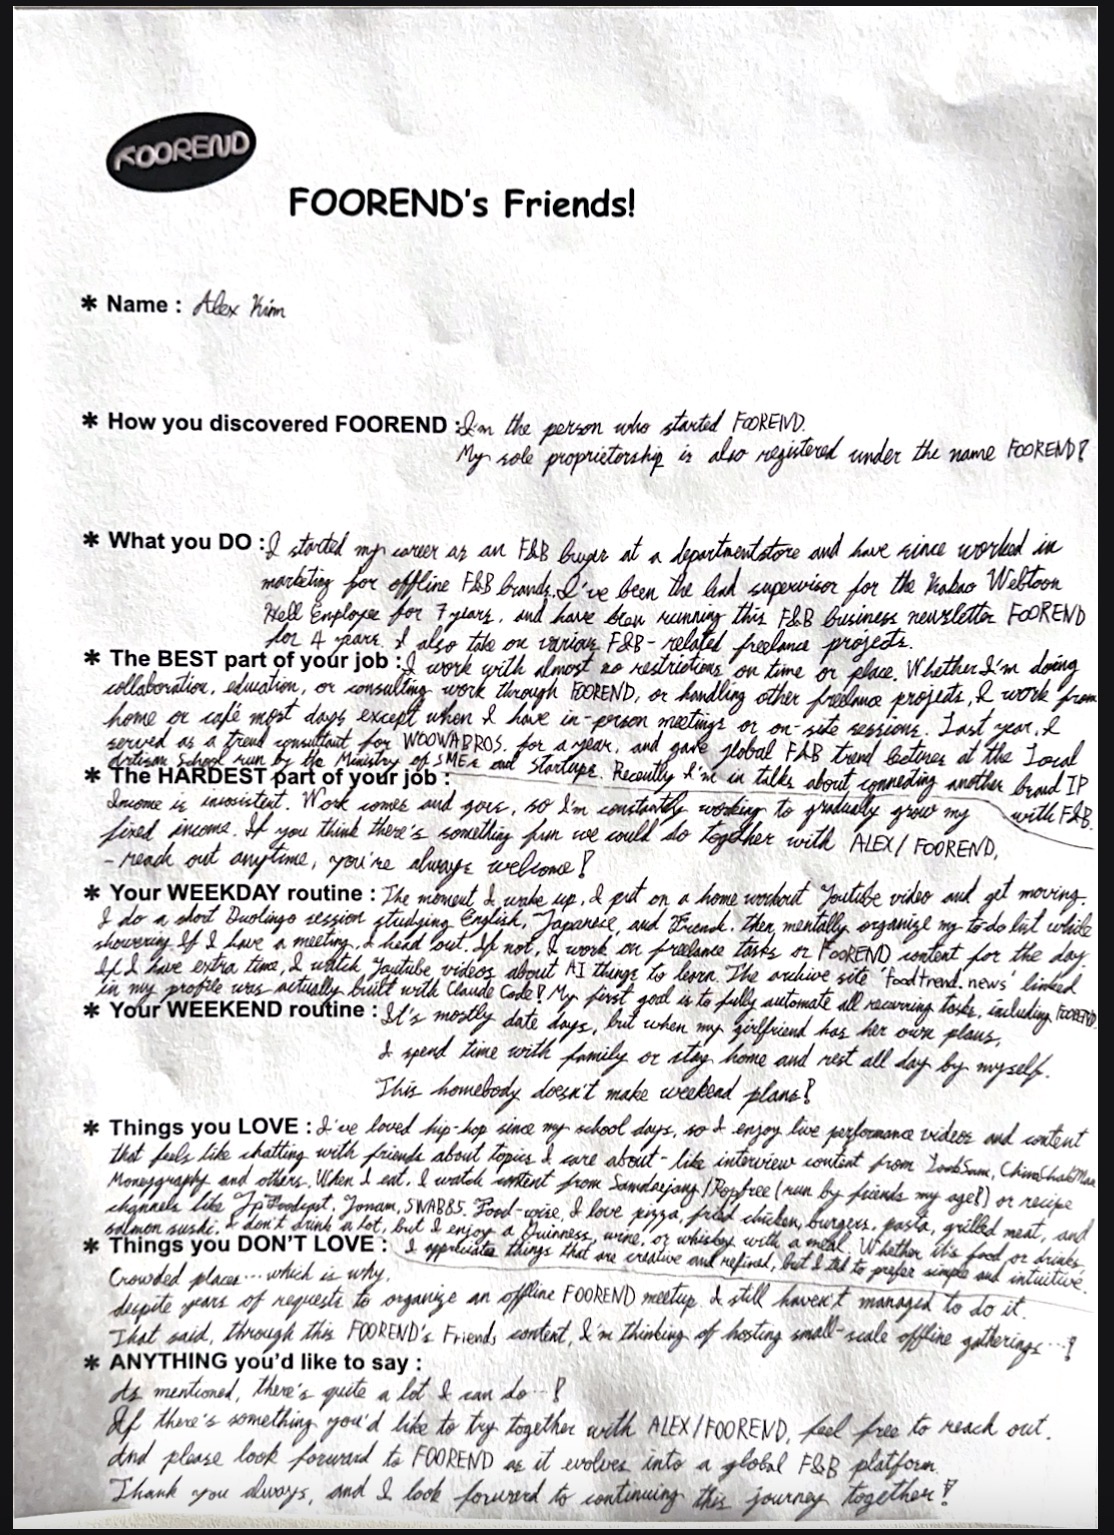 FOOREND
FOOREND's Friends!
* Name : Alex Kim
* How you discovered FOOREND : I'm the person who started FOOREND.
My sole proprietorship is also registered under the name FOOREND!
* What you DO : I started my career as an F&B buyer at a department store and have since worked in
marketing for offline F&B brands. I've been the lead supervisor for the Kakao Webtoon
Hell Employee for 7 years, and have been running this F&B business newsletter FOOREND
for 4 years. I also take on various F&B-related freelance projects.
* The BEST part of your job : I work with almost no restrictions on time or place. Whether I'm doing
collaboration, education, or consulting work through FOOREND, or handling other freelance projects, I work from
home or café most days except when I have in-person meetings or on-site sessions. Last year, I
served as a trend consultant for WOOWABROS. for a year, and gave global F&B trend lectures at the Local
Artisan School run by the Ministry of SMEs and Startups. Recently I'm in talks about connecting another brand IP
with F&B.
* The HARDEST part of your job :
Income is inconsistent. Work comes and goes, so I'm constantly working to gradually grow my
fixed income. If you think there's something fun we could do together with ALEX/FOOREND,
- reach out anytime, you're always welcome!
* Your WEEKDAY routine : The moment I wake up, I put on a home workout Youtube video and get moving.
I do a short Duolingo session studying English, Japanese, and French, then mentally organize my to-do list while
showering. If I have a meeting, I head out. If not, I work on freelance tasks or FOOREND content for the day.
If I have extra time, I watch Youtube videos about AI things to learn. The archive site 'foodtrend.news' linked
in my profile was actually built with Claude Code! My first goal is to fully automate all recurring tasks, including FOOREND.
* Your WEEKEND routine : It's mostly date days, but when my girlfriend has her own plans,
I spend time with family or stay home and rest all day by myself.
This homebody doesn't make weekend plans!
* Things you LOVE : I've loved hip-hop since my school days, so I enjoy live performance videos and content
that feels like chatting with friends about topics I care about - like interview content from
Moneygraphy and others. When I eat, I watch content from Samdaejang/Ropfree (run by friends my age!) or recipe
channels like Jonam, SNABBS. Food-wise, I love pizza, fried chicken, burgers, pasta, grilled meat, and
salmon sushi. I don't drink a lot, but I enjoy a Guinness, wine, or whiskey with a meal. Whether it's food or drinks,
I appreciate things that are creative and refined, but I tend to prefer simple and intuitive.
* Things you DON'T LOVE :
Crowded places... which is why,
despite years of requests to organize an offline FOOREND meetup, I still haven't managed to do it.
That said, through this FOOREND's Friends content, I'm thinking of hosting small-scale offline gatherings...!
* ANYTHING you'd like to say :
As mentioned, there's quite a lot I can do...!
If there's something you'd like to try together with ALEX/FOOREND, feel free to reach out.
And please look forward to FOOREND as it evolves into a global F&B platform.
Thank you always, and I look forward to continuing this journey together!